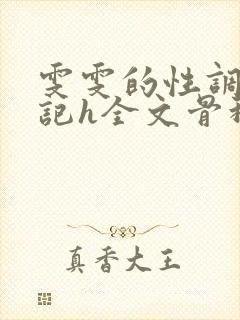 雯雯的性調
記h全文骨科
真香大王